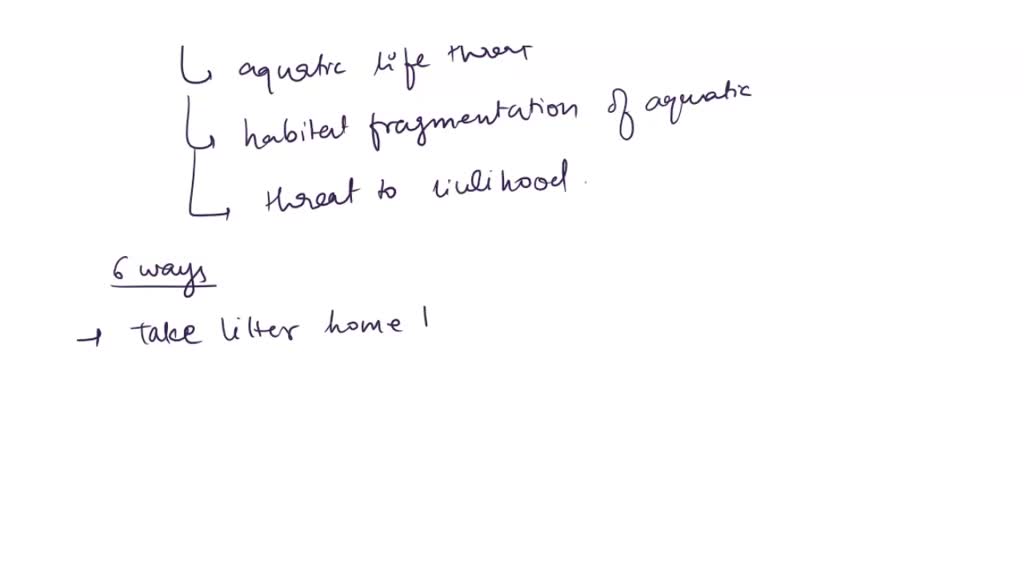 aquatic life threat
habitat fragmentation of aquatic
threat to livlihood.
6 ways
→ take litter home |